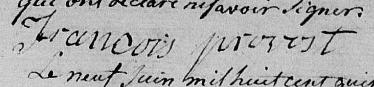 qui ont déclaré ne savoir signer.
François provost
Le neuf Juin mil huit cent